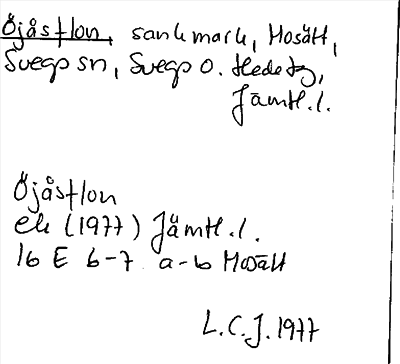 Öjåsflon, sankmark, Mosätt,
Svegs sn, Svegs o. Hede tg,
Jämtl. l.
Öjåsflon
ek (1977) Jämtl. l.
16 E 6-7 a-b Mosätt
L.C.J. 1977